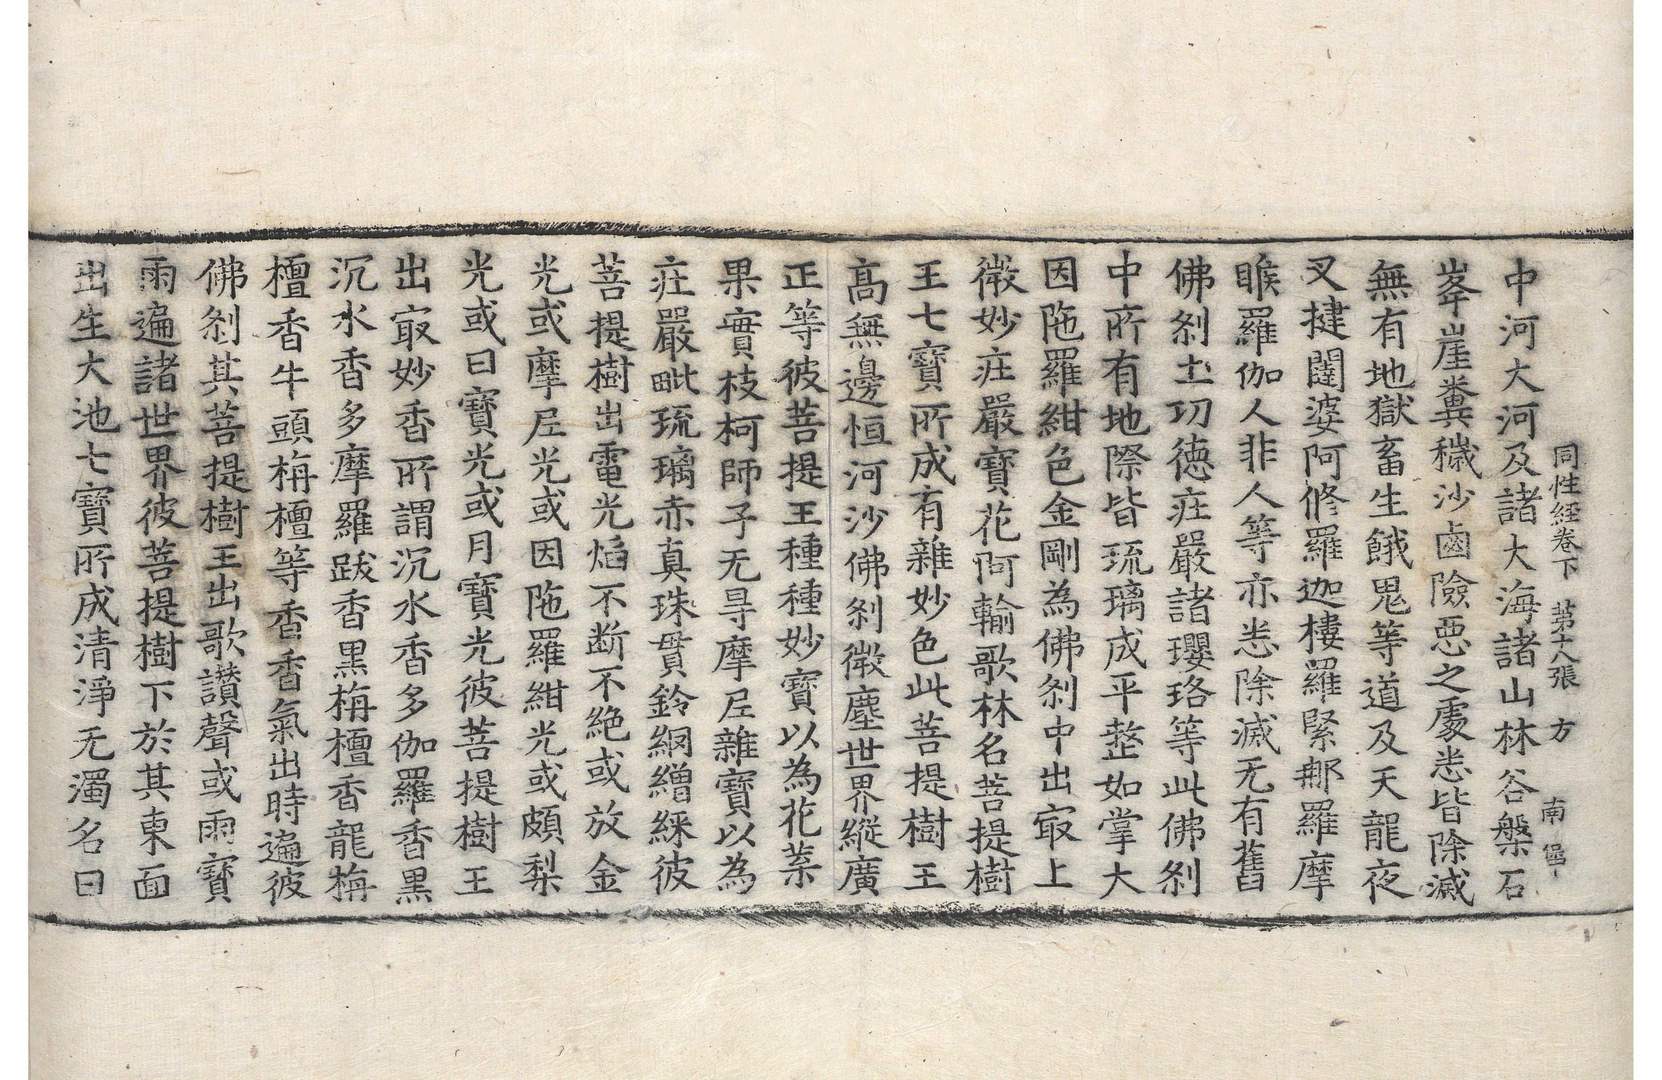 同性經卷下　第十八張　方　南
中河大河及諸大海諸山林谷槃石
峯崖糞穢沙鹵險惡之處悉皆除滅
無有地獄畜生餓鬼等道及天龍夜
叉揵闥婆阿修羅迦樓羅緊那羅摩
睺羅伽人非人等亦悉除滅无有舊
佛刹土功德莊嚴諸瓔珞等此佛刹
中所有地際皆琉璃成平整如掌大
因陁羅紺色金剛為佛刹中出㝡上
微妙莊嚴寶花何輸歌林名菩提樹
王七寶所成有雜妙色此菩提樹王
髙無邊恒河沙佛刹微塵世界縱廣
正等彼菩提王種種妙寶以為花葉
果實枝柯師子无㝵摩尼雜寶以為
莊嚴毗琉璃赤真珠貫鈴網繒綵彼
菩提樹出電光焰不断不絶或放金
光或摩尼光或因陁羅紺光或頗梨
光或日寶光或月寶光彼菩提樹王
出㝡妙香所謂沉水香多伽羅香黑
沉水香多摩羅跋香黑栴檀香龍栴
檀香牛頭栴檀等香香氣出時遍彼
佛刹其菩提樹王出歌讃聲或雨寶
雨遍諸世界彼菩提樹下於其東面
出生大池七寶所成清淨无濁名曰